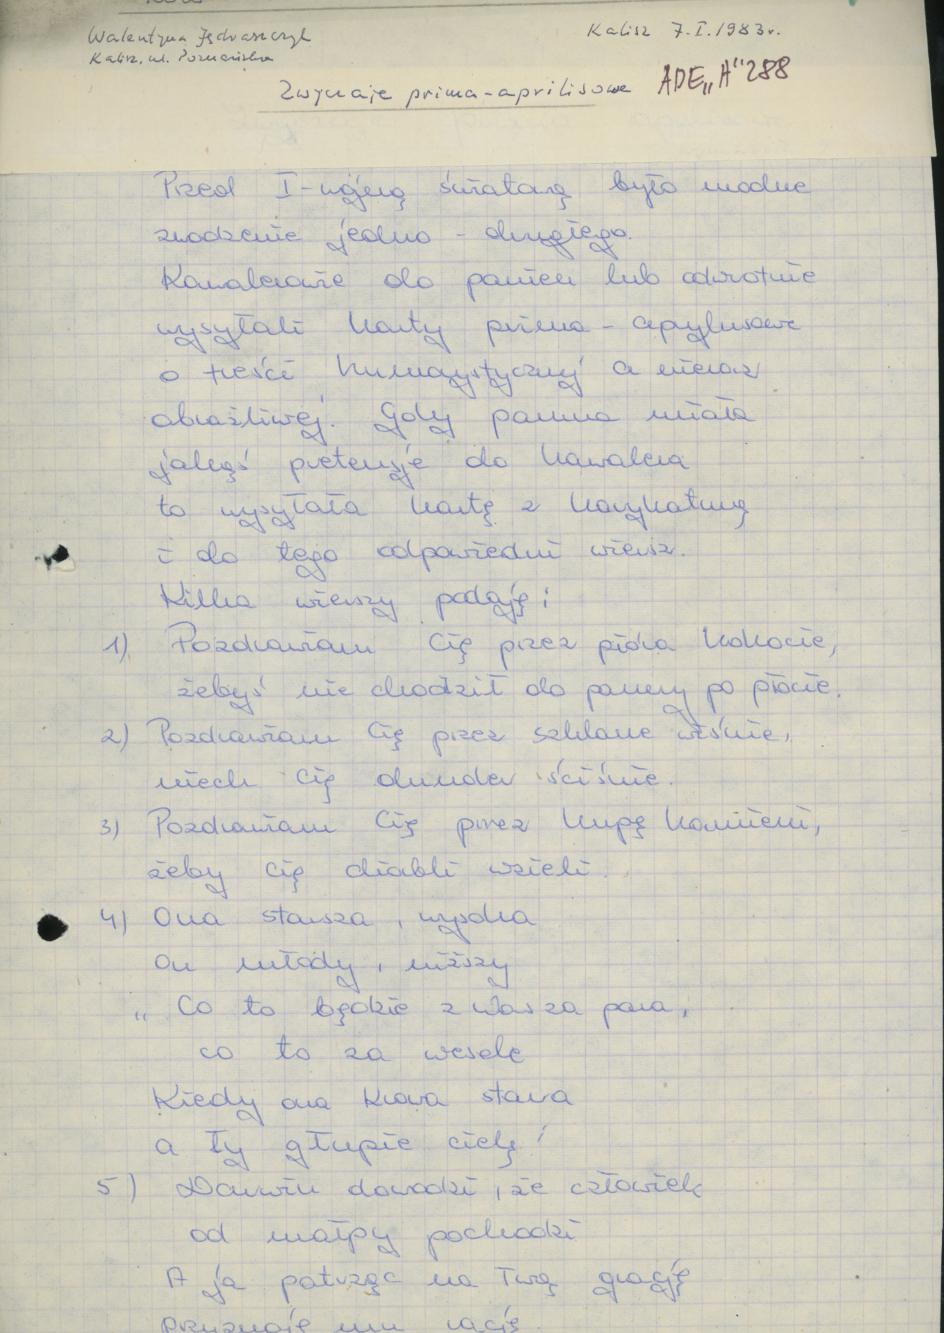 Walentyna Jędraszczyk
Kalisz, ul. Poznańska
Kalisz 7.I.1983r.
Zwyczaje prima-aprilisowe ADE „A" 288
Przed I-wojną światową było modne
zwodzenie jedno - drugiego.
Kawalerowie do panien lub odwrotnie
wysyłali karty prima - aprylisowe
o treści humorystycznej a nieraz
obraźliwej. Gdy panna miała
jakąś pretensje do kawalera
to wysyłała kartę z karykaturą
i do tego odpowiedni wiersz.
Kilka wierszy podaję:
1) Pozdrawiam Cię przez pióra kokocie,
żebyś nie chodził do panny po płocie.
2) Pozdrawiam Cię przez szklane wiśnie,
niech Cię dunder ściśnie.
3) Pozdrawiam Cię przez kupę kamieni,
żeby Cię diabli wzieli.
4) Ona starsza, wysoka
On młody, niższy
„Co to będzie z Was za para,
co to za wesele
Kiedy ona krowa stara
a ty głupie cielę!
5) Darwin dowodzi, że człowiek
od małpy pochodzi
A ja patrząc na Twą grację
przyznaję mu rację.